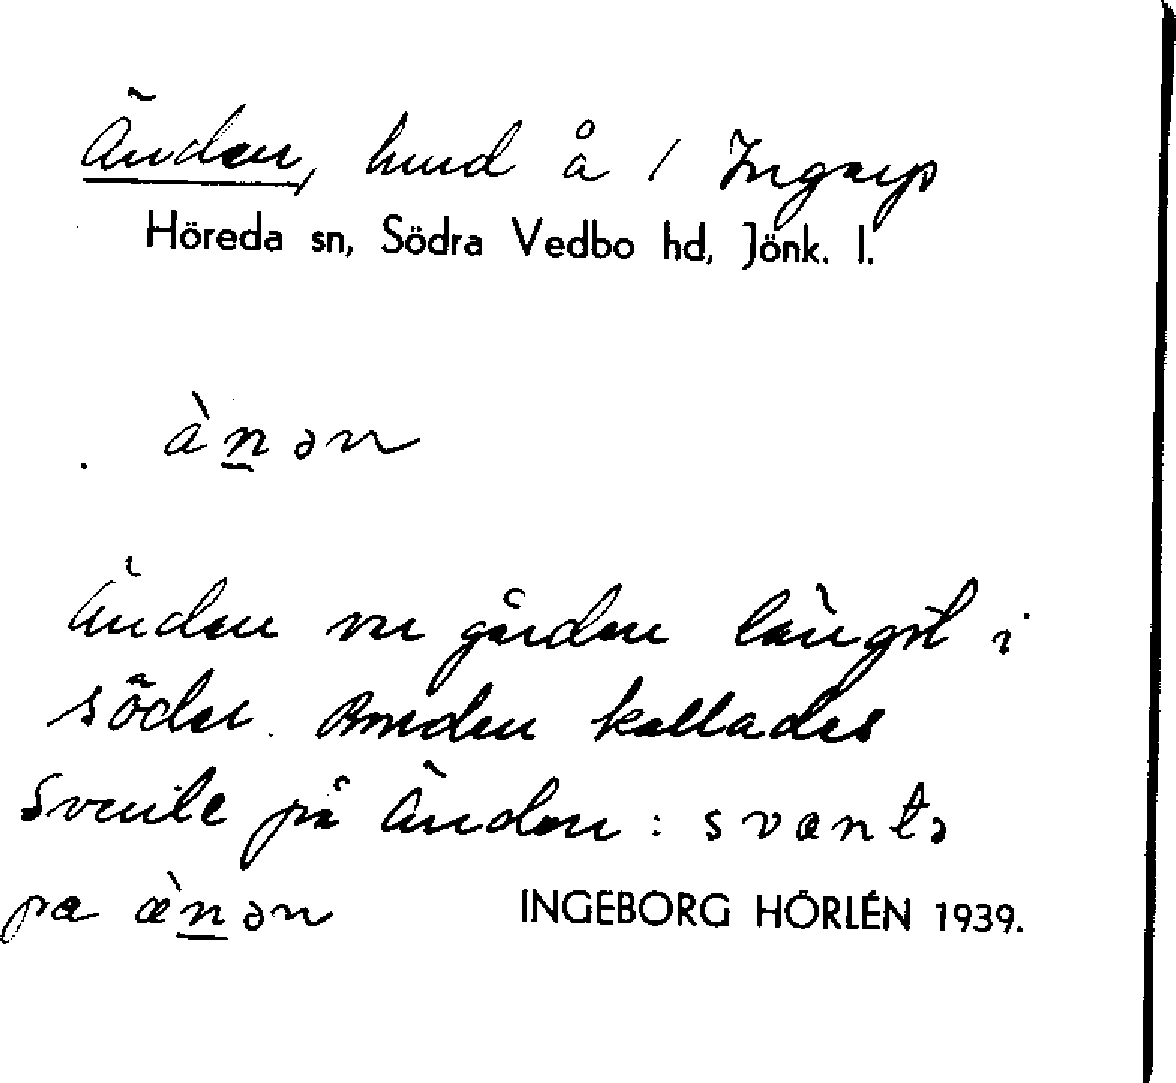 Änden, hmd å 1 Ingarp
Höreda sn, Södra Vedbo hd, Jönk. l.
ànən
Änden var gården längst i
söder. Bonden kallades
Svente på Änden: svæntə
pa æ̀nən INGEBORG HÖRLÉN 1939.